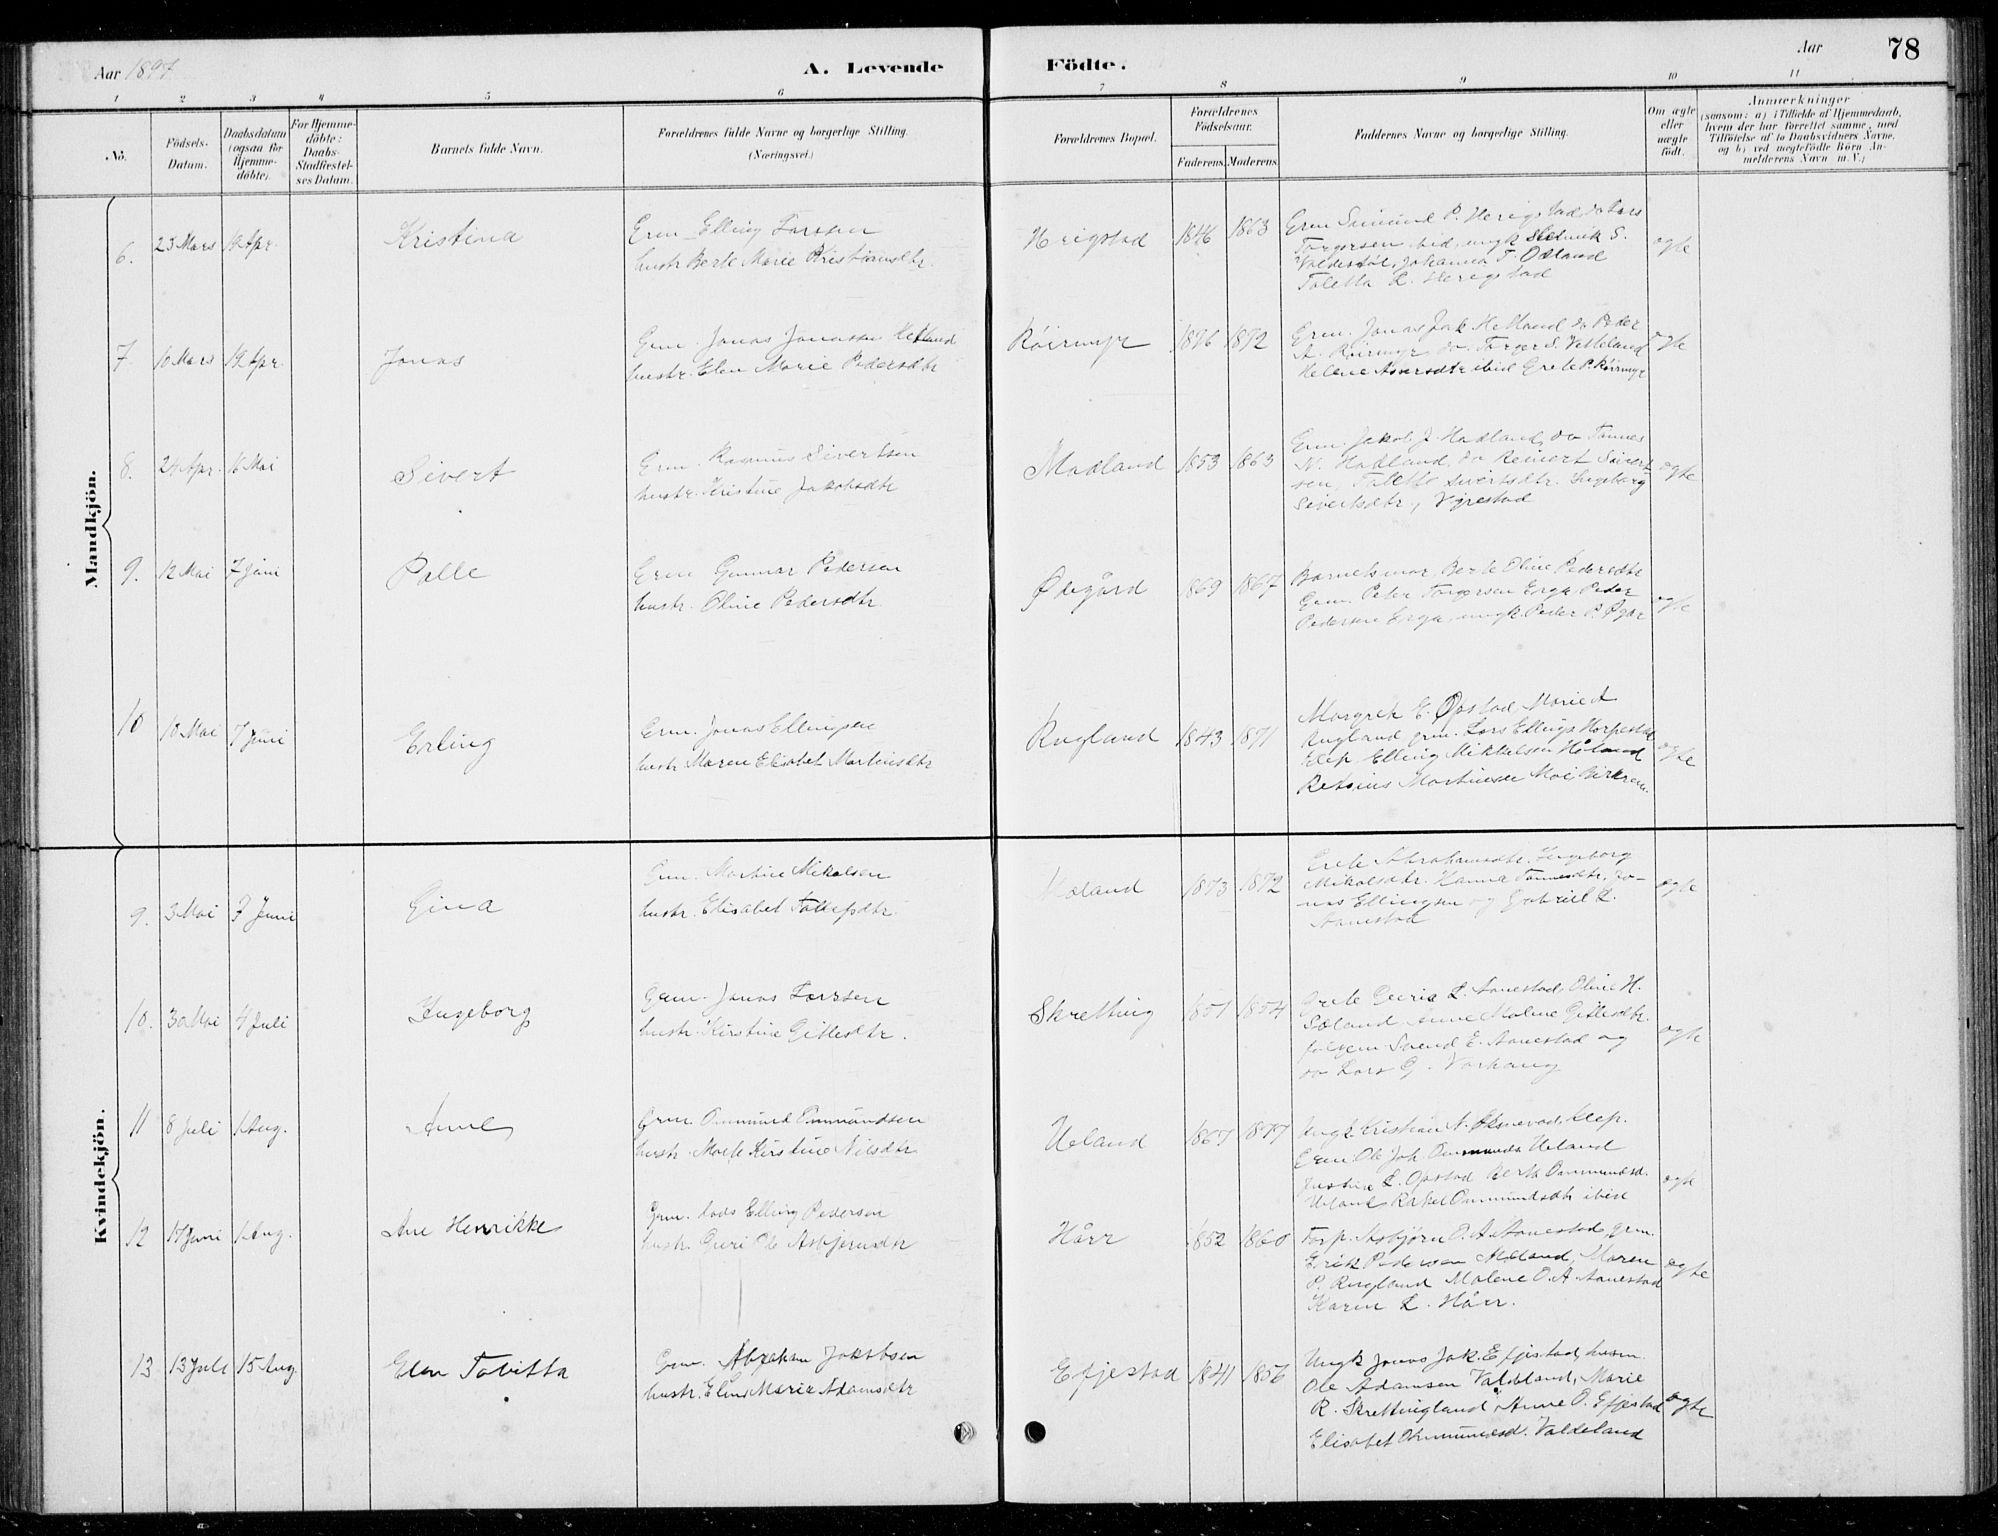 Aar 1897
A. Levende
Födte.
Aar
78
1 2 3 4 5 6 7 8 9 10 11
No.
Födsels-
Datum.
Daabsdatum
(ogsaa för
Hjemme-
döbte).
For Hjemme-
döbte:
Daabs-
Stadfæstel-
ses Datum.
Barnets fulde Navn.
Forældrenes fulde Navne og borgerlige Stilling.
(Næringsvei.)
Forældrenes Bopæl.
Forældrenes
Födselsaar.
Faderens. Moderens.
Faddernes Navne og borgerlige Stilling.
Om ægte
eller
uægte
födt.
Anmærkninger
(saasom: a) i Tilfælde af Hjemmedaab,
hvem der har forrettet samme, med
Tilföielse af to Daabsvidners Navne,
og b) ved uægtefödte Börn An-
melderens Navn m. V.)
Mandkjön.
6. 23 Mars 19 Apr. Kristina
Grm. Elling Larsen
hustr. Berte Marie Kristiansdtr.
Herigstad 1846 1863
Grm Saimund P. Herigstad, do Lars
Torgersen ibid, ungk S.
Valdestøl, Johanna T. Odland
Taletta L. Herigstad
ægte
7. 10 Mars 19 Apr. Jonas
Grm. Jonas Jonassen Hetland
hustr. Elen Marie Pedersdtr
Røirmyr 1876 1872
Grm. Jonas Jak Hetland do Peder
A. Røirmyr do. Torger S. Vetteland
Helene ibid Grete P. Røirmyr
ægte
8. 24 Apr. 16 Mai Sivert
Grm. Rasmus Sivertsen
hustr. Kristine Jakobsdtr
Madland 1853 1863
Grm. Jakob J. Hadland, do Tønnes
N. Hadland, do Reinert Sivert
sen, Talette Sivertsdtr. Ingeborg
Sivertsdtr,
ægte
9. 12 Mai 7 Juni Palle
Grm Gunnar Pedersen
hustr. Oline Pedersdtr
Ødegård 1869 1867
Barnets mor, Berte Oline Pedersdtr
Grm. Peter Torgersen Erga, Peder
Pedersen Erga, ungk. Peder P.
ægte
10 10 Mai 7 Juni Erling
Grm. Jonas Ellingsen
hustr. Maren Elisabet Martinsdtr
Rugland 1843 1871
Margrete E. Opstad, Marie A
Rugland grm. Lars Ellings Horpestad
Klep, Elling Mikkelsen Høland
Retsius Martinsen Moi, Birkrem.
ægte
Kvindekjön.
9. 3 Mai 7 Juni Gina
Grm. Martin Mikalsen
hustr. Elisabet Tollefsdtr
Moland 1873 1872
Grete Abrahamsdtr. Ingeborg
Mikalsdtr. Hanna Tønnesdtr, Jo-
nas Ellingsen og Gabriel L.
Aanestad
ægte
10. 30 Mai 4 Juli Ingeborg
Grm. Jonas Larsen
hustr. Kirstine Gitlesdtr.
Skretting 1851 1854
Grete Guria L. Aanestad, Oline H.
Søland, Anne Malene Gitlesdtr.
Svend E. Aanestad og
do Lars G. Varhaug
ægte
11 8 Juli 1 Aug. Anne
Grm. Ommund Ommundsen
hustr. Marte Kirstine Nilsdtr
Ueland 1867 1877
Ungk. Kristian N. Øksnevad, Klep.
Grm Ole Joh. Ommunds Ueland
Justine L. Opstad Berte Ommundsd.
Ueland Rakel Ommundsdtr ibid
ægte
12 17 Juni 1 Aug. Ane Henrikke
Grm. Lods Elling Pedersen
hustr. Guri Ole Asbjørnsdtr
Hårr 1852 1860
Forp. Asbjørn O. A. Aanestad, grm.
Erik Pedersen Meland, Maren
P. Rugland Malene O. A. Aanestad
Karen L. Hårr.
ægte
13 13 Juli 15 Aug. Elen Tobitta
Grm. Abraham Jakobsen
hustr. Eline Marie Adamsdtr
Efjestad 1841 1856
Ungk Jonas Jak. Efjestad, husm.
Ole Adamsen Valdeland, Marie
R. Skrettingland, Anne O. Efjestad
Elisabet Ommundsd. Valdeland
ægte